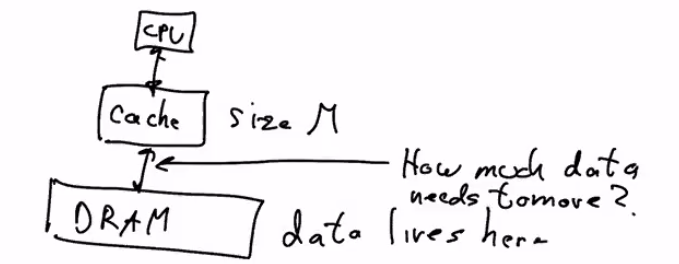 CPU
Cache size M
How much data
needs to move?
DRAM data lives here